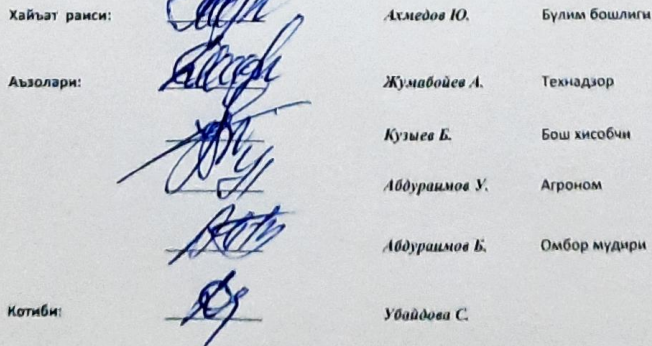 Хайъат раиси: Ахмедов Ю. Бўлим бошлиги
Аъзолари: Жумабойев А. Технадзор
Кузыев Б. Бош хисобчи
Абдураимов У. Агроном
Абдураимов Б. Омбор мудири
Котиби: Убайдова С.